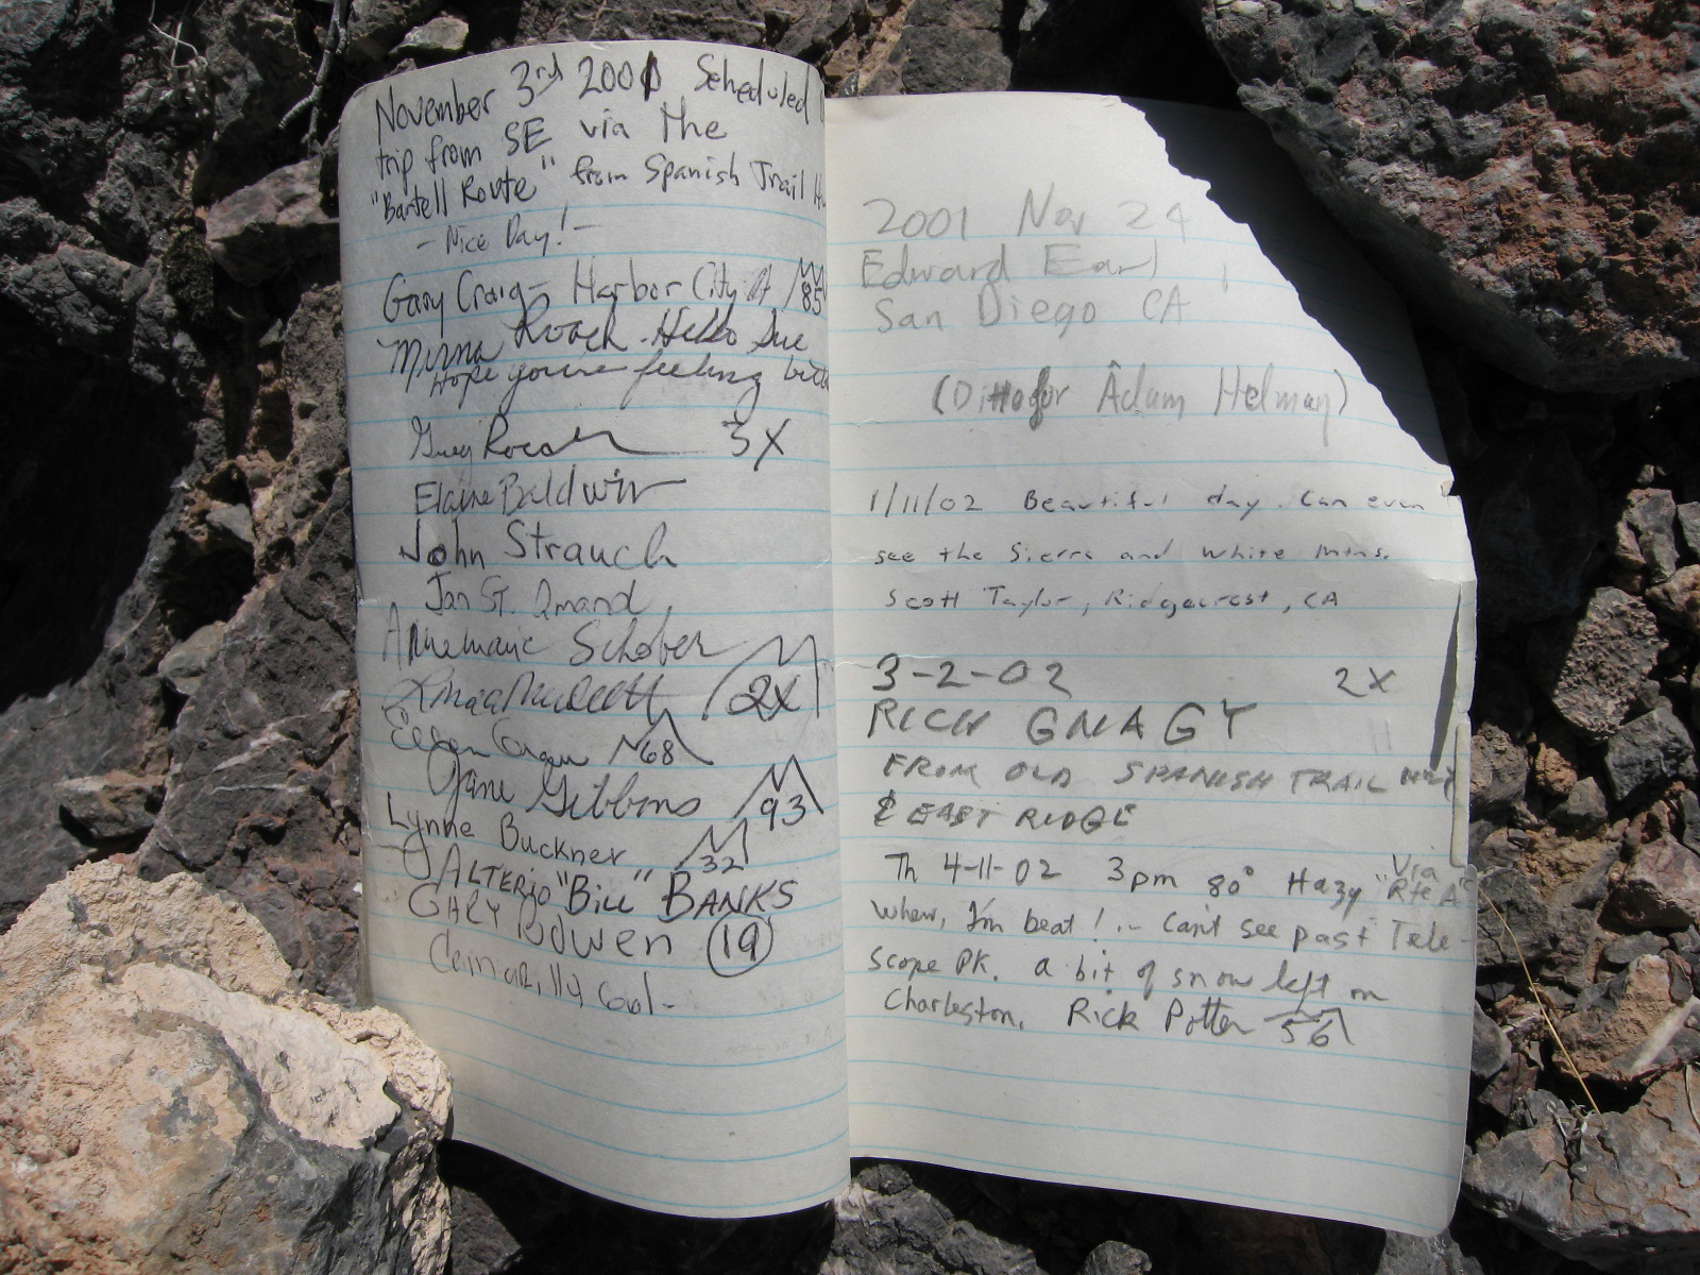 November 3rd 2001 Scheduled
trip from SE via the
"Bartell Route" from Spanish Trail
- Nice Day! -
Gary Craig - Harbor City 85
Mirna Roach - Hello Sue
Hope you're feeling
Greg Roach 3X
Elaine Baldwin
John Strauch
Jan St. Amand
Annemarie Schober
2X
Ellen 68
Jane Gibbons 93
Lynne Buckner 32
ALTERIO "Bill" BANKS
GARY Bowen 19
2001 Nov 24
Edward Earl
San Diego CA
(Ditto for Adam Helman)
1/11/02 Beautiful day. Can even
see the Sierra and White Mtns.
Scott Taylor, Ridgecrest, CA
3-2-02 2X
RICH GNAGY
FROM OLD SPANISH TRAIL HWY
& EAST RIDGE
Th 4-11-02 3pm 80° Hazy "Via Rte A"
Whew, I'm beat! - Can't see past Tele-
scope PK. a bit of snow left on
Charleston. Rick Potter 56